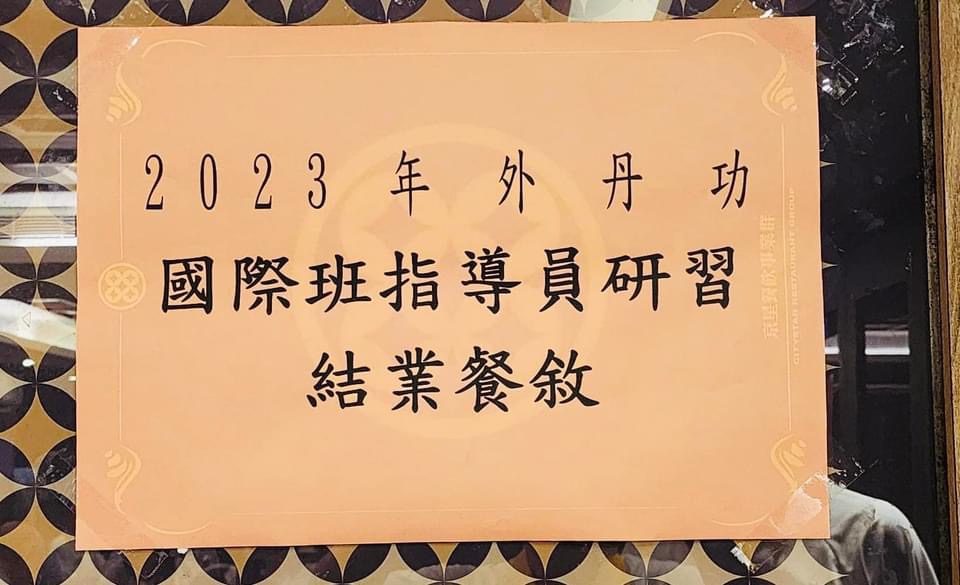 2023年外丹功
國際班指導員研習
結業餐敘
京星餐飲事業群
CITYSTAR RESTAURANT GROUP